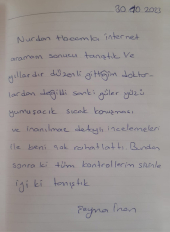 30 10 2021
Nurdan Hocamla internet
araması sonucu tanıştık. Ve
yıllardır düzenli gittiğim doktor-
lardan değildi sanki güler yüzü
yumuşacık sıcak konuşması
ve inanılmaz detaylı incelemeleri
ile beni çok rahatlattı Bundan
sonra ki tüm kontrollerim sizinle
iyi ki tanıştık
İnan